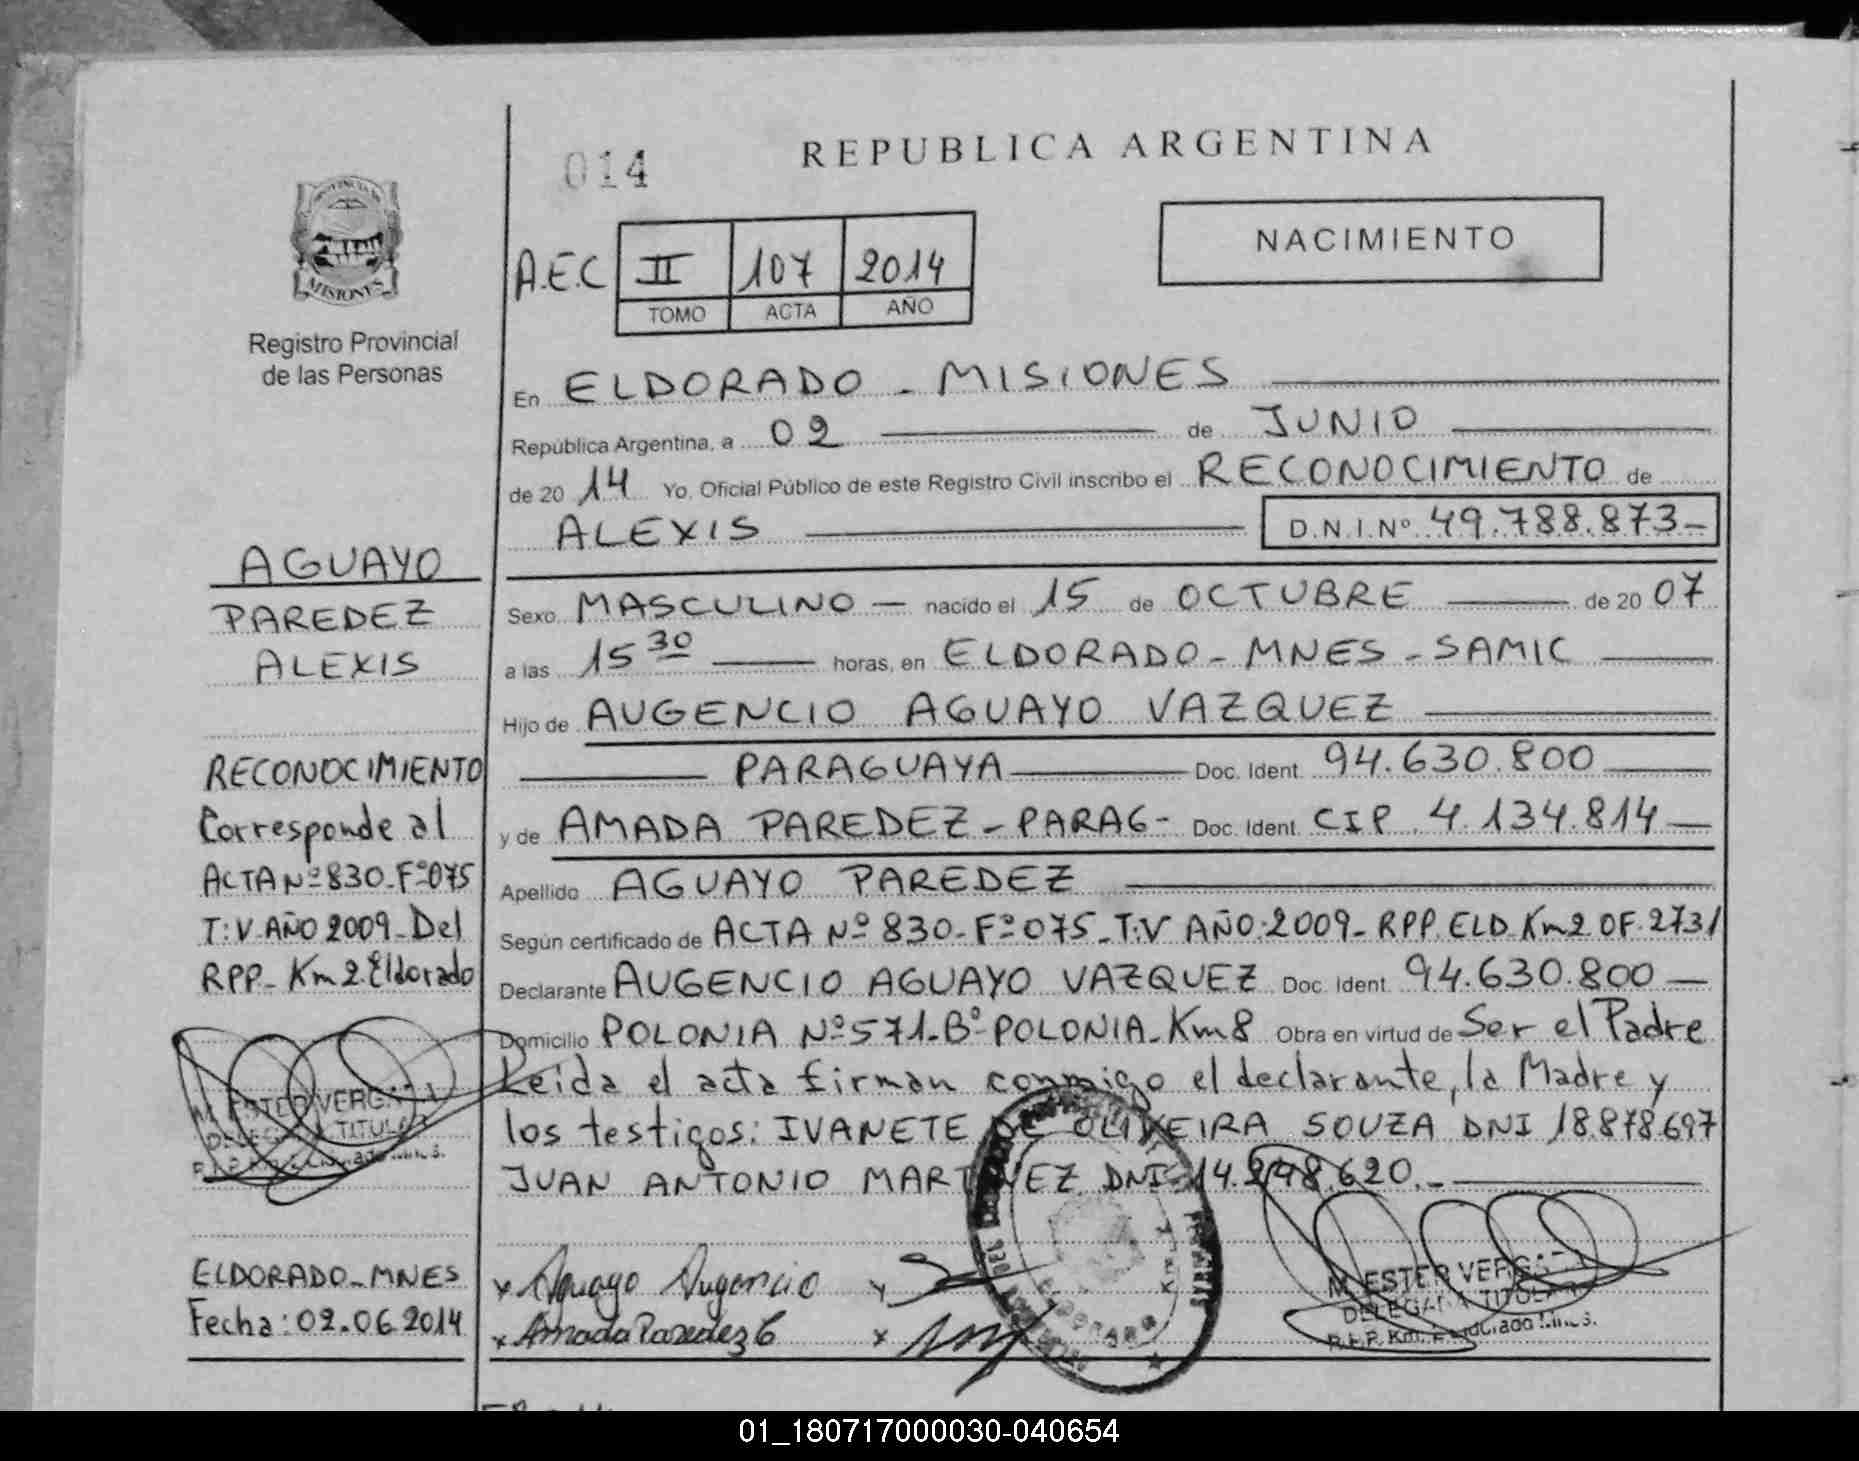 014
REPUBLICA ARGENTINA
NACIMIENTO
A.E.C II 107 2014
TOMO ACTA AÑO
MISIONES
Registro Provincial
de las Personas
En ELDORADO - MISIONES
República Argentina, a 02 de JUNIO
de 20 14 Yo, Oficial Público de este Registro Civil inscribo el RECONOCIMIENTO de
ALEXIS D.N.I.Nº 49.788.873-
Sexo MASCULINO - nacido el 15 de OCTUBRE de 20 07
a las 15 30 horas, en ELDORADO - MNES - SAMIC
Hijo de AUGENCIO AGUAYO VAZQUEZ
PARAGUAYA Doc. Ident. 94.630.800
y de AMADA PAREDEZ - PARAG - Doc. Ident. CIP 4.134.814
Apellido AGUAYO PAREDEZ
Según certificado de ACTA Nº 830 - Fº 075 - T:V AÑO:2009 - RPP. ELD. Km2 OF. 2731
Declarante AUGENCIO AGUAYO VAZQUEZ Doc. Ident. 94.630.800
Domicilio POLONIA Nº 571 - Bº POLONIA - Km 8 Obra en virtud de Ser el Padre
Leida el acta firman conmigo el declarante, la Madre y
los testigos: IVANETE DE OLIVEIRA SOUZA DNI 18.878.697
JUAN ANTONIO MARTINEZ DNI 14.298.620.-
x Aguayo Augencio
x Amada Paredez C
M. ESTER VERG
DELEGADA TITULAR
R.P.P. Km. 2 Eldorado Mnes.
AGUAYO
PAREDEZ
ALEXIS
RECONOCIMIENTO
Corresponde al
ACTA Nº 830 - Fº 075
T:V AÑO 2009 - Del
RPP - Km 2 Eldorado
M. ESTER VERG
DELEGADA TITULAR
R.P.P. Km. 2 Eldorado Mnes.
ELDORADO - MNES
Fecha: 02.06.2014
01_180717000030-040654